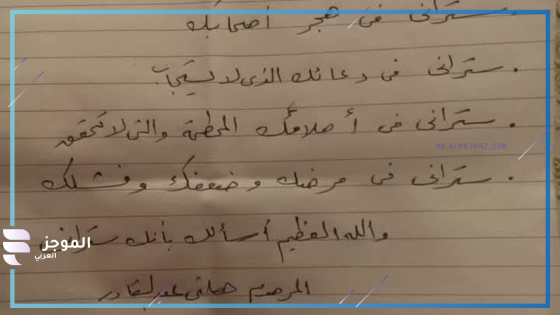 . ستراني في هجر أصحابك
. ستراني في دعائك الذي لا يستجاب
. ستراني في أحلامك المحطمة والتي لا تتحقق
AR.ALMOJAAZ.COM
. ستراني في مرضك وضعفك وفشلك
والله العظيم أسألك بأنك ستراني
الموجز
العربي
المرحوم